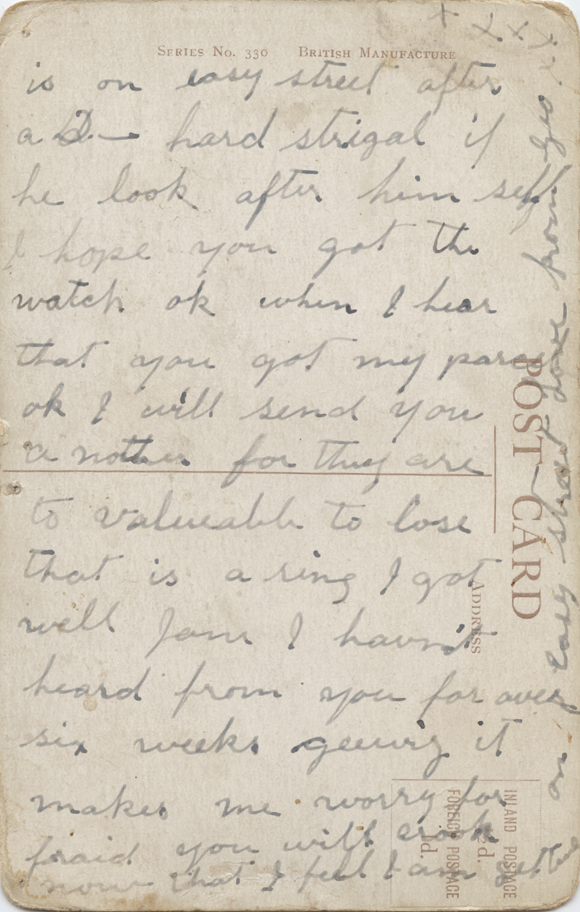 SERIES NO. 330 BRITISH MANUFACTURE
x x x x
is on easy street after
a hard strigal if
he look after him self
I hope you got the
watch ok when I hear
that you got my
ok I will send you
a nother for they are
to valueable to lose
that is a ring I got
well I havn't
heard from you for over
six weeks it
makes me worry for
fraid you will
now that I feel I am
on easy love from Geo.
POST CARD
ADDRESS
INLAND POSTAGE
½d.
FOREIGN POSTAGE
1d.